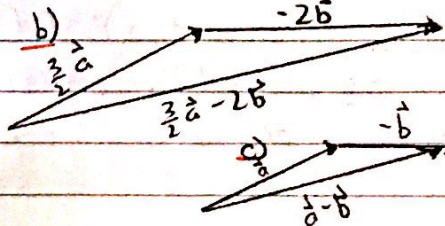 b) -2b⃗
3/2 a⃗
3/2 a⃗ - 2b⃗
c) -b⃗
a⃗
a⃗ - b⃗